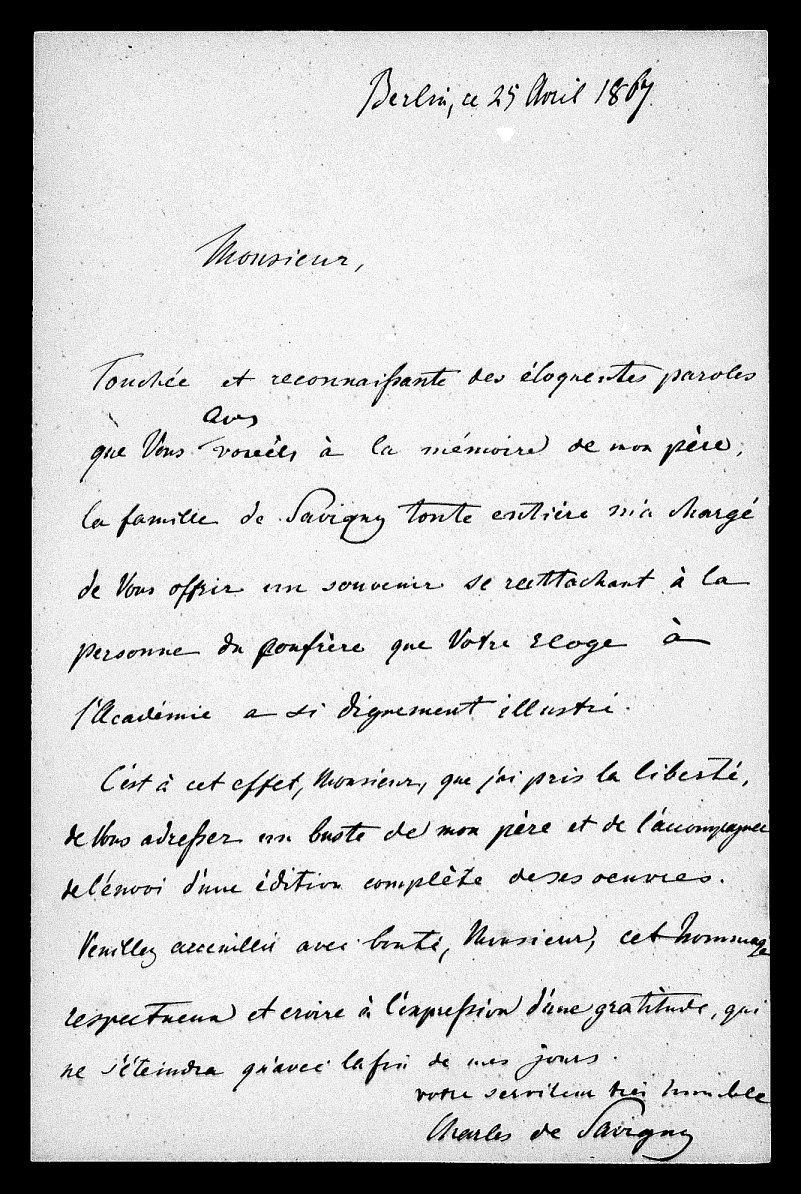 Berlin, ce 25 Avril 1867.
Monsieur,
Touchée et reconnaissante des éloquentes paroles
avez
que Vous vouées à la mémoire de mon père,
la famille de Savigny toute entière m'a chargé
de Vous offrir un souvenir se rattachant à la
personne du confrère que Votre Eloge à
l'Académie a si dignement illustré.
C'est à cet effet, Monsieur, que j'ai pris la liberté,
de Vous adresser un buste de mon père et de l'accompagner
de l'énvoi d'une édition complète de ses oeuvres.
Veuillez accueillir avec bonté, Monsieur, cet hommage
respectueux et croire à l'expression d'une gratitude, qui
ne s'éteindra qu'avec la fin de mes jours.
votre serviteur très humble
Charles de Savigny